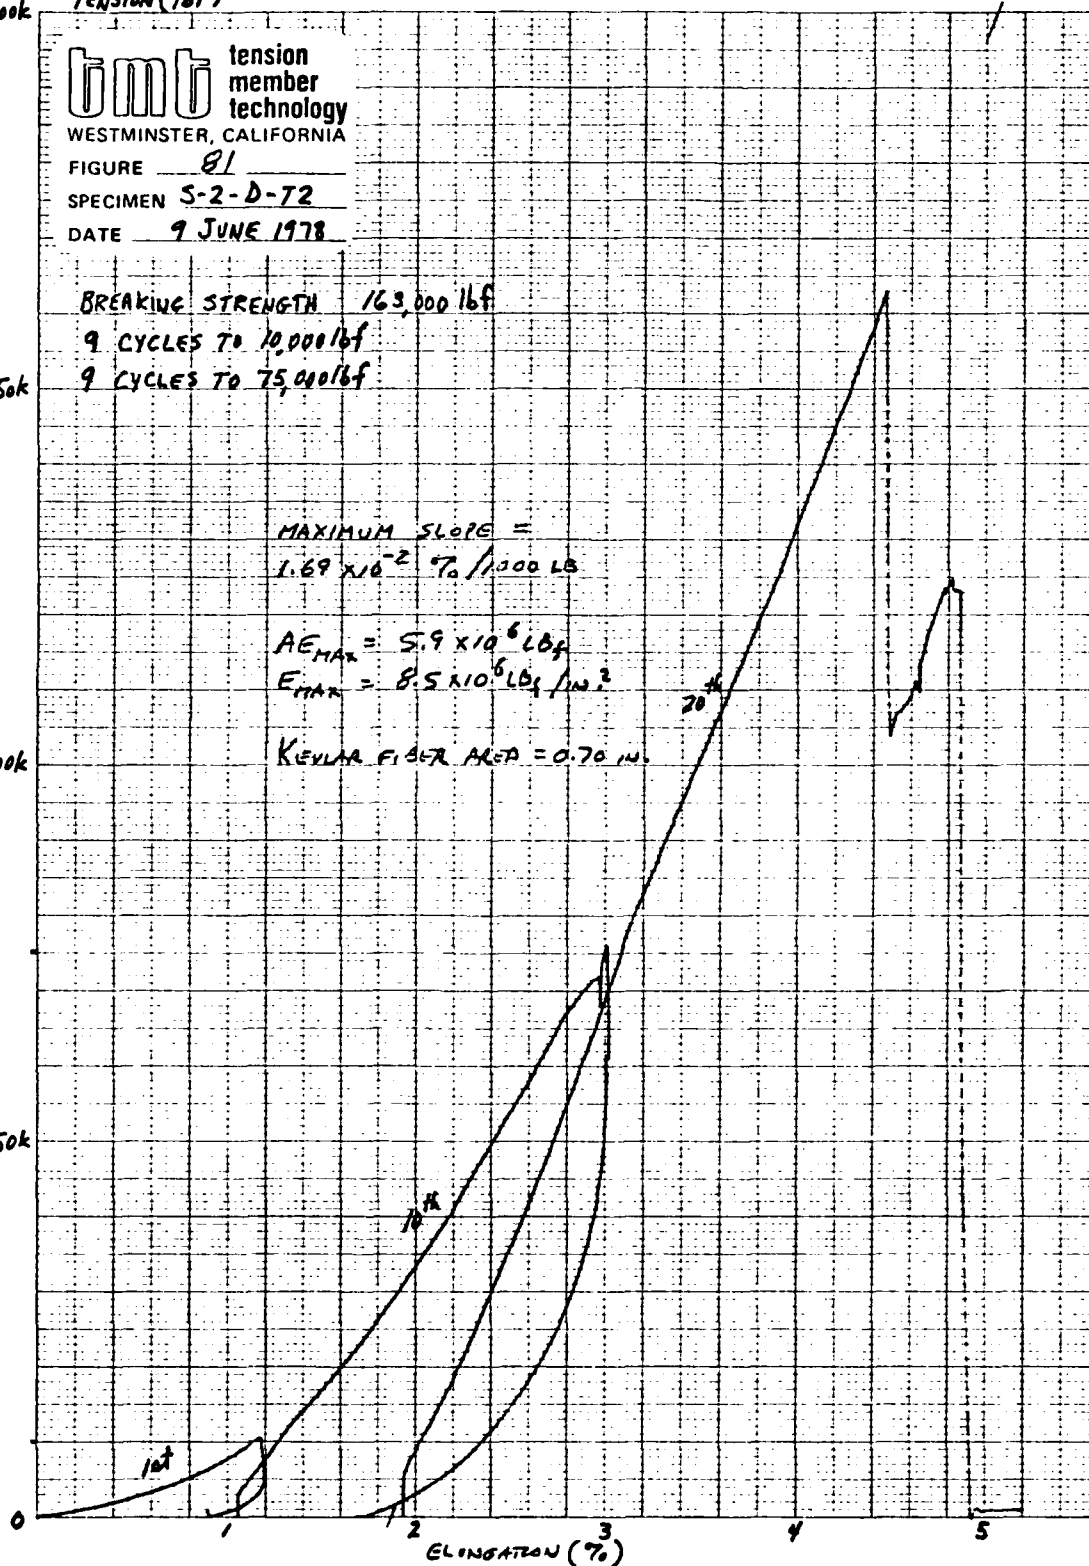 TENSION (lbf)
tmt tension
member
technology
WESTMINSTER, CALIFORNIA
FIGURE 81
SPECIMEN S-2-D-T2
DATE 9 JUNE 1978
BREAKING STRENGTH 163,000 lbf
9 CYCLES TO 10,000 lbf
9 CYCLES TO 75,000 lbf
50k
MAXIMUM SLOPE =
1.69 x 10⁻² %/1000 LB
AE_MAX = 5.9 x 10⁶ LBf
E_MAX = 8.5 x 10⁶ LBf/IN.²
20th
KEVLAR FIBER AREA = 0.70 IN.
00k
50k
10th
1st
0
1 2 3 4 5
ELONGATION (%)